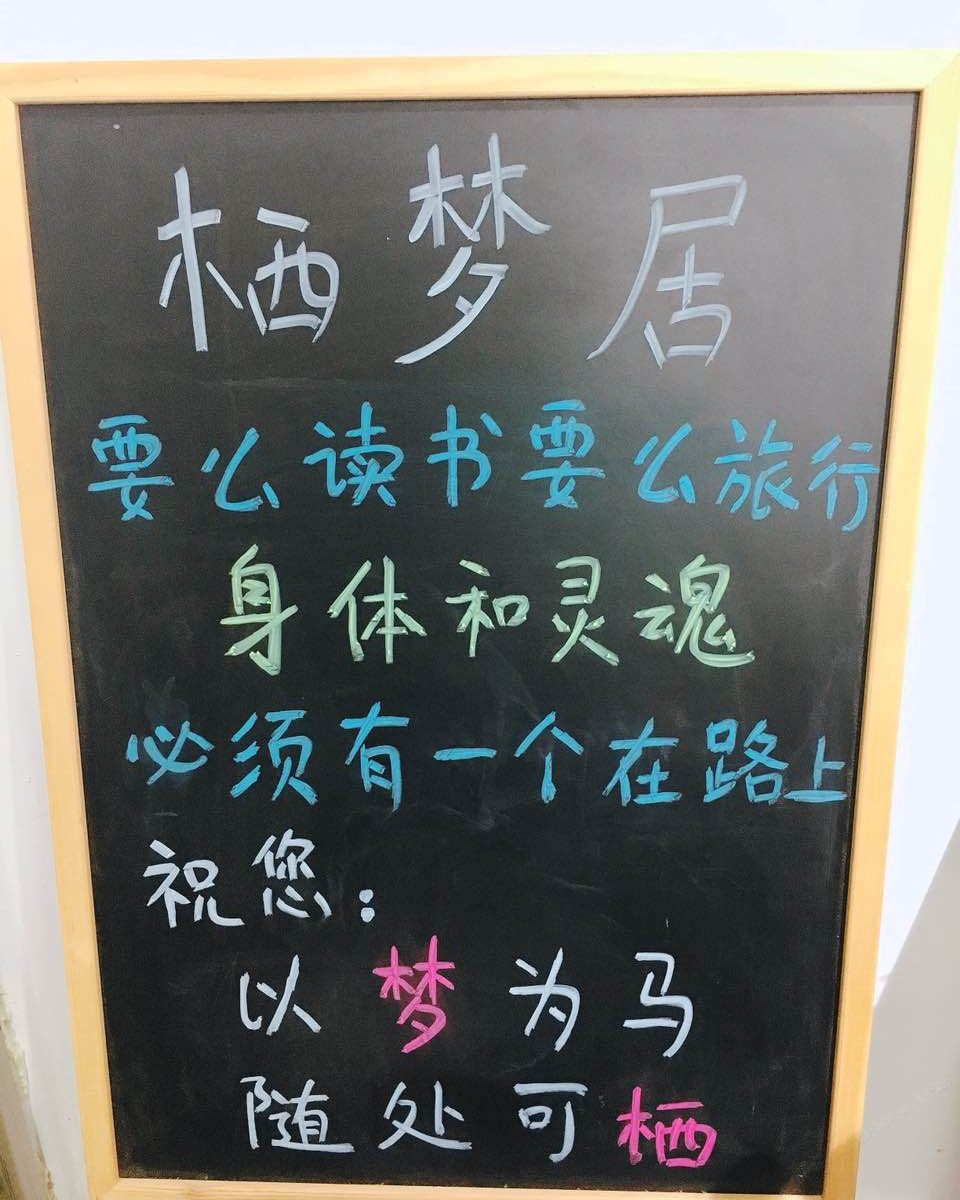 栖梦居
要么读书要么旅行
身体和灵魂
必须有一个在路上
祝您：
以梦为马
随处可栖